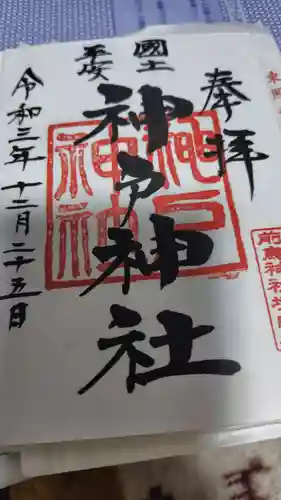 奉拝
國土
平安
神戸神社
令和三年十二月二十五日
神戸
神社
前鳥神社境内